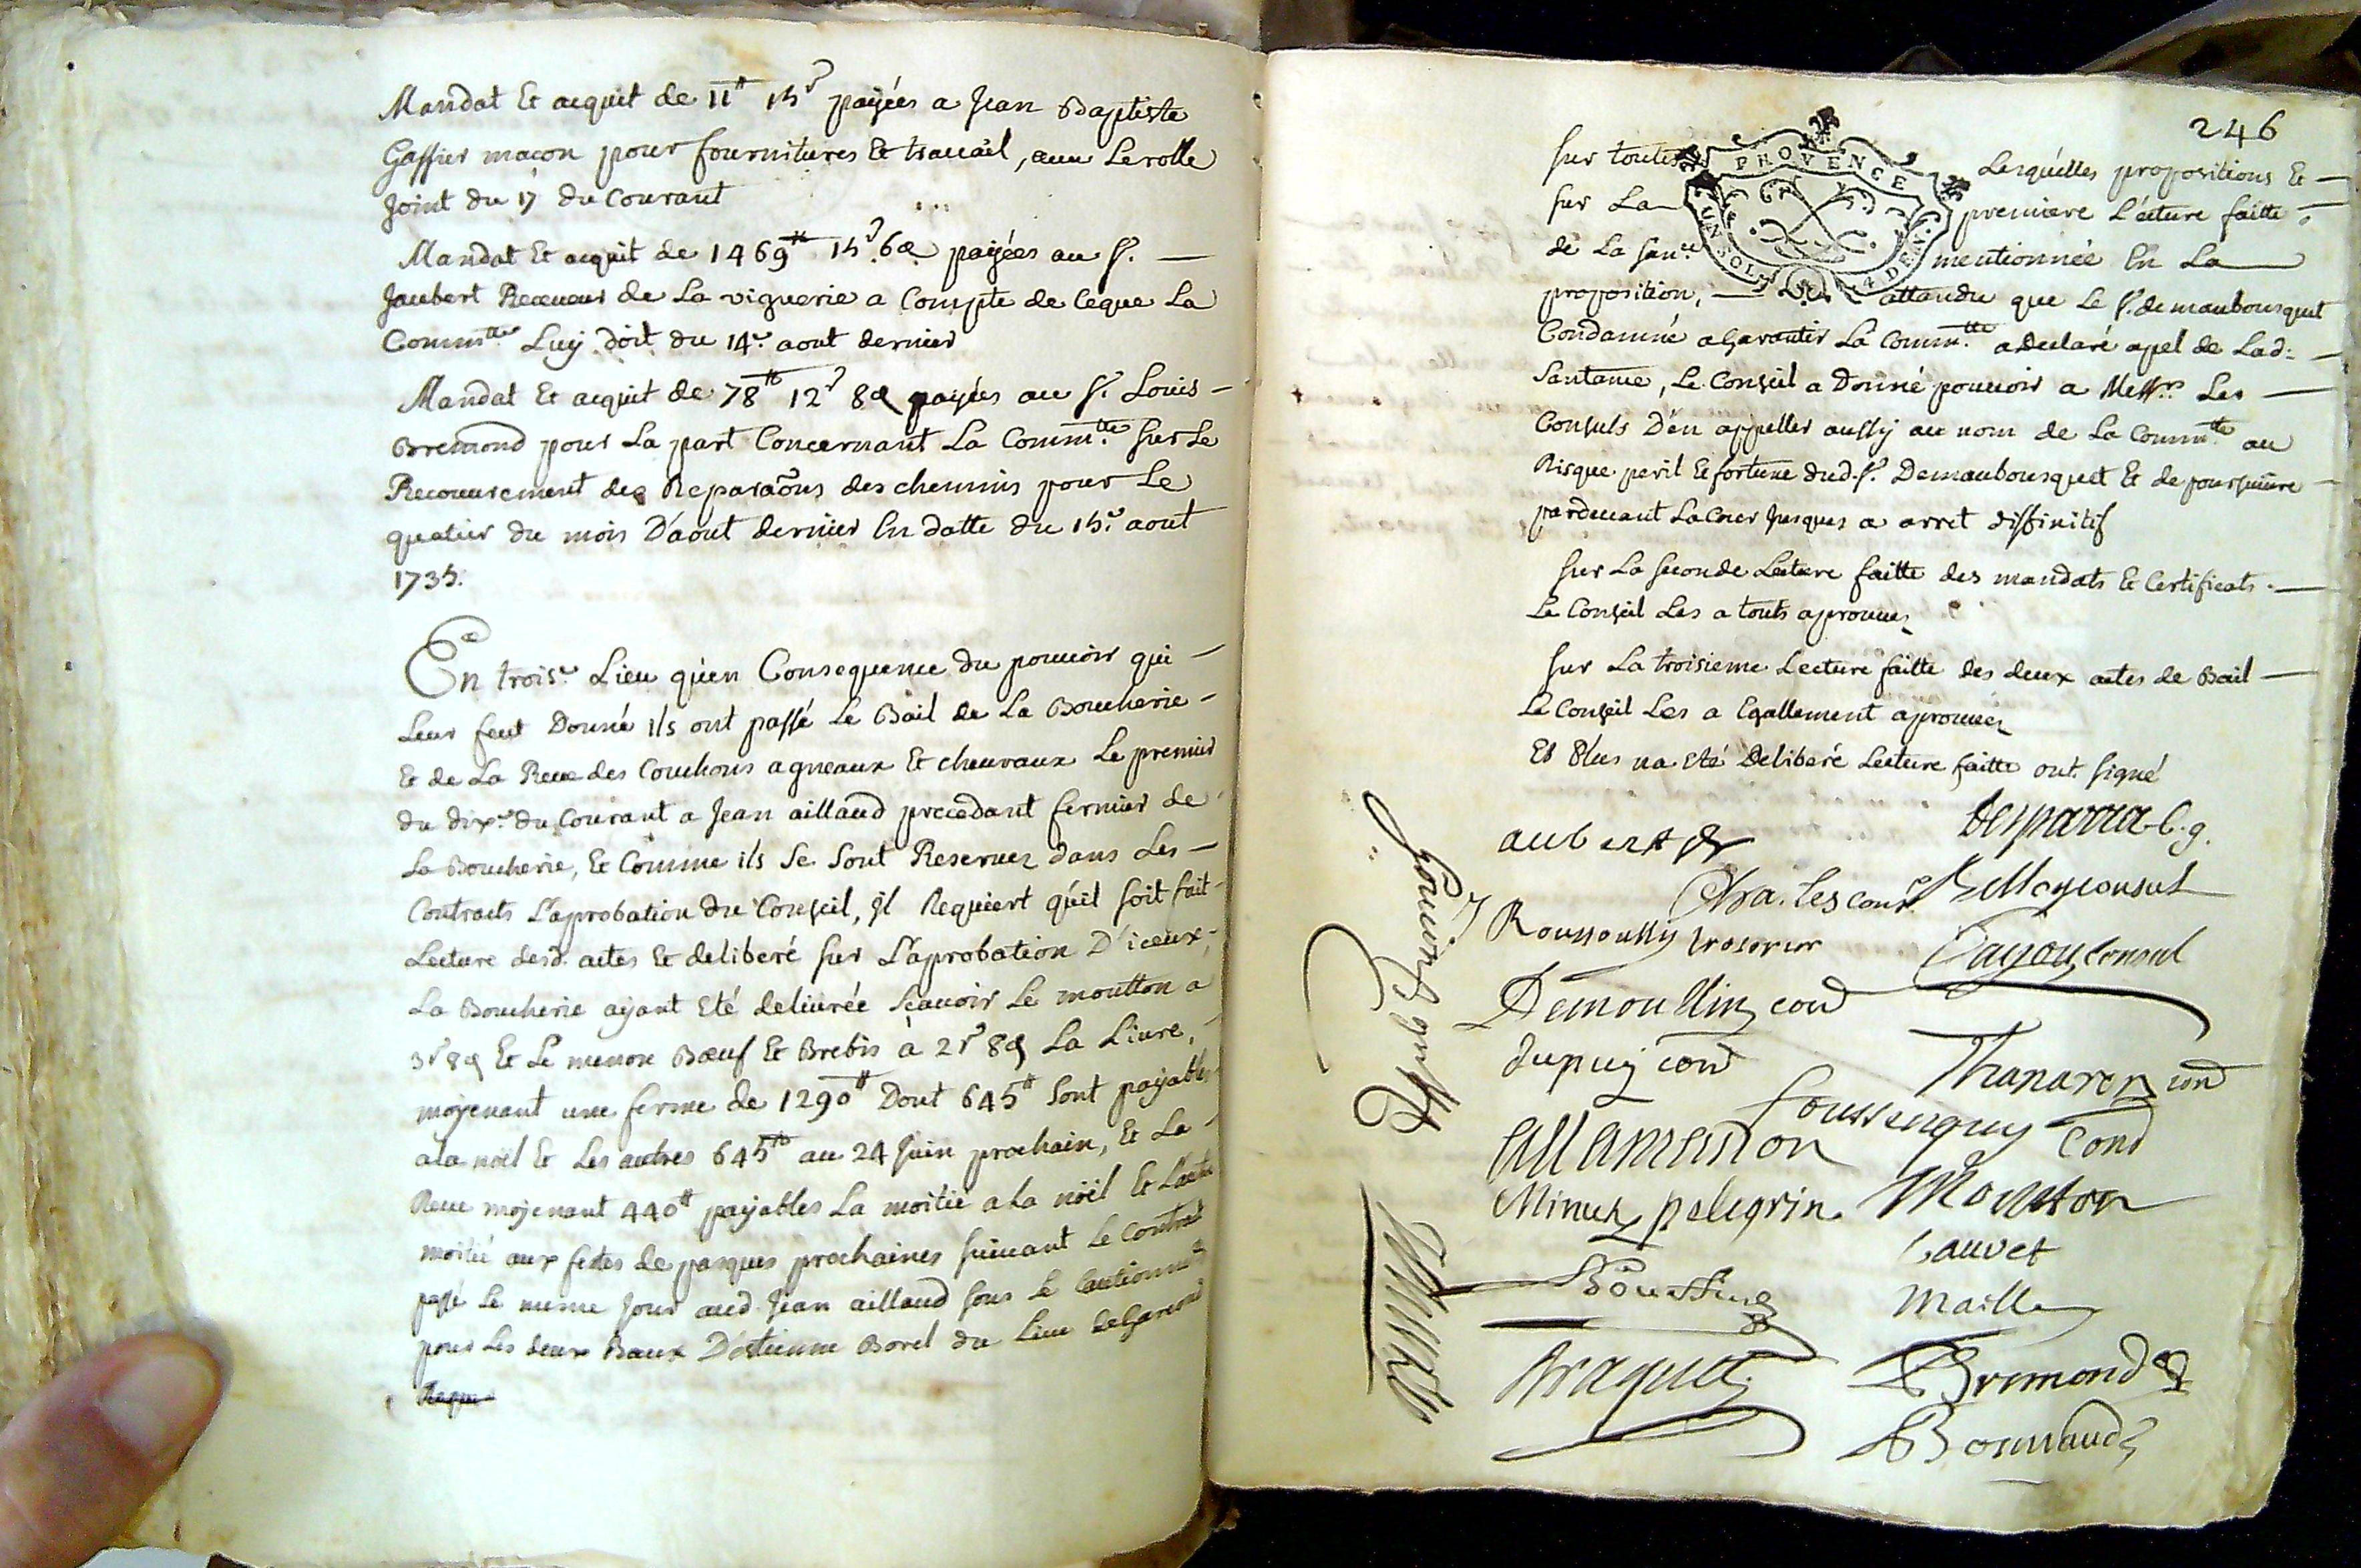 Mandat Et acquit de 11tt 15s payées a Jean Baptiste
Gassier maçon pour fournitures Et trauail, aun Le rolle
Joint du 17 du Courant
Mandat Et acquit de 1469tt 15s 6d payées au Sr.
Jaubert Receueur de La viguerie a Compte de Ceque La
Commtté Luy doit du 14e aout dernier
Mandat Et acquit de 78tt 12s 8d payées au Sr. Louis
Bremond pour La part Concernant La Commtté Sur Le
Recouurement des Reparaõns des chemins pour Le
quatier du mois D'aout dernier En datte du 15e aout
1735.
En troise Lieu qu'en Consequence du pouuoir qui
Leur feut Donné ils ont passé Le Bail de La Boucherie
Et de La Reue des Couchons agneaux Et cheuraux Le premier
du dixe du Courant a Jean aillaud precedant fermier de
La Boucherie, Et Comme ils Se Sont Reseruez dans Les
Contracts L'aprobation du Conseil, Il Requiert qu'il soit fait
Lecture desd. actes Et deliberé sur L'aprobation D'iceux,
La Boucherie ayant Eté deliurée Scauoir Le moutton a
3s 8d Et Le menon Bœuf Et Brebis à 2s 8d La Liure,
moyenant une ferme de 1290tt Dont 645tt Sont payables
ala noël Et Les autres 645tt au 24 Juin prochain, Et La
Reue moyenant 440tt payables La moitié a la noël Et L'autre
moitié aux fettes de pasques prochaines suiuant Le Contrat
passé Le meme Jour aud. Jean aillaud sous Le Cautionnemt
pour Les deux Baux D'estienne Borel du Lieu
246
Sur toutes Lesquelles propositions Et
Sur La premiere L'ecture faitte
de La Sance mentionnée En La
proposition, attandu que Le Sr. demaubousquet
Condamné a Garantir La Commtté a declaré apel de Lad.
Santance, Le Conseil a Donné pouuoir a Messrs Les
Consuls D'en appeller aussy au nom de La Commtté au
Risque peril Et fortune dud. Sr. Demaubousquet Et de poursuiure
pardeuant La Cour Jusques a arret diffinitif
Sur La seconde Lecture faitte des mandats Et Certificats
Le Conseil Les a touts aprouuez
Sur La troisieme Lecture faitte des deux actes de Bail
Le Conseil Les a Egallement aprouuez
Et Plus na Eté Deliberé Lecture faitte ont signé
PROVENCE
UN SOL 4 DEN.
aubert
Desparra
consul
Roussoully tresorier
Payou Consul
Demoullin cons
dupuy cons
Thanaron cons
foussenquy Cons
allamanon
Minuty pelegrin
Moutton
Sauvet
Maille
Braquet
Bremond